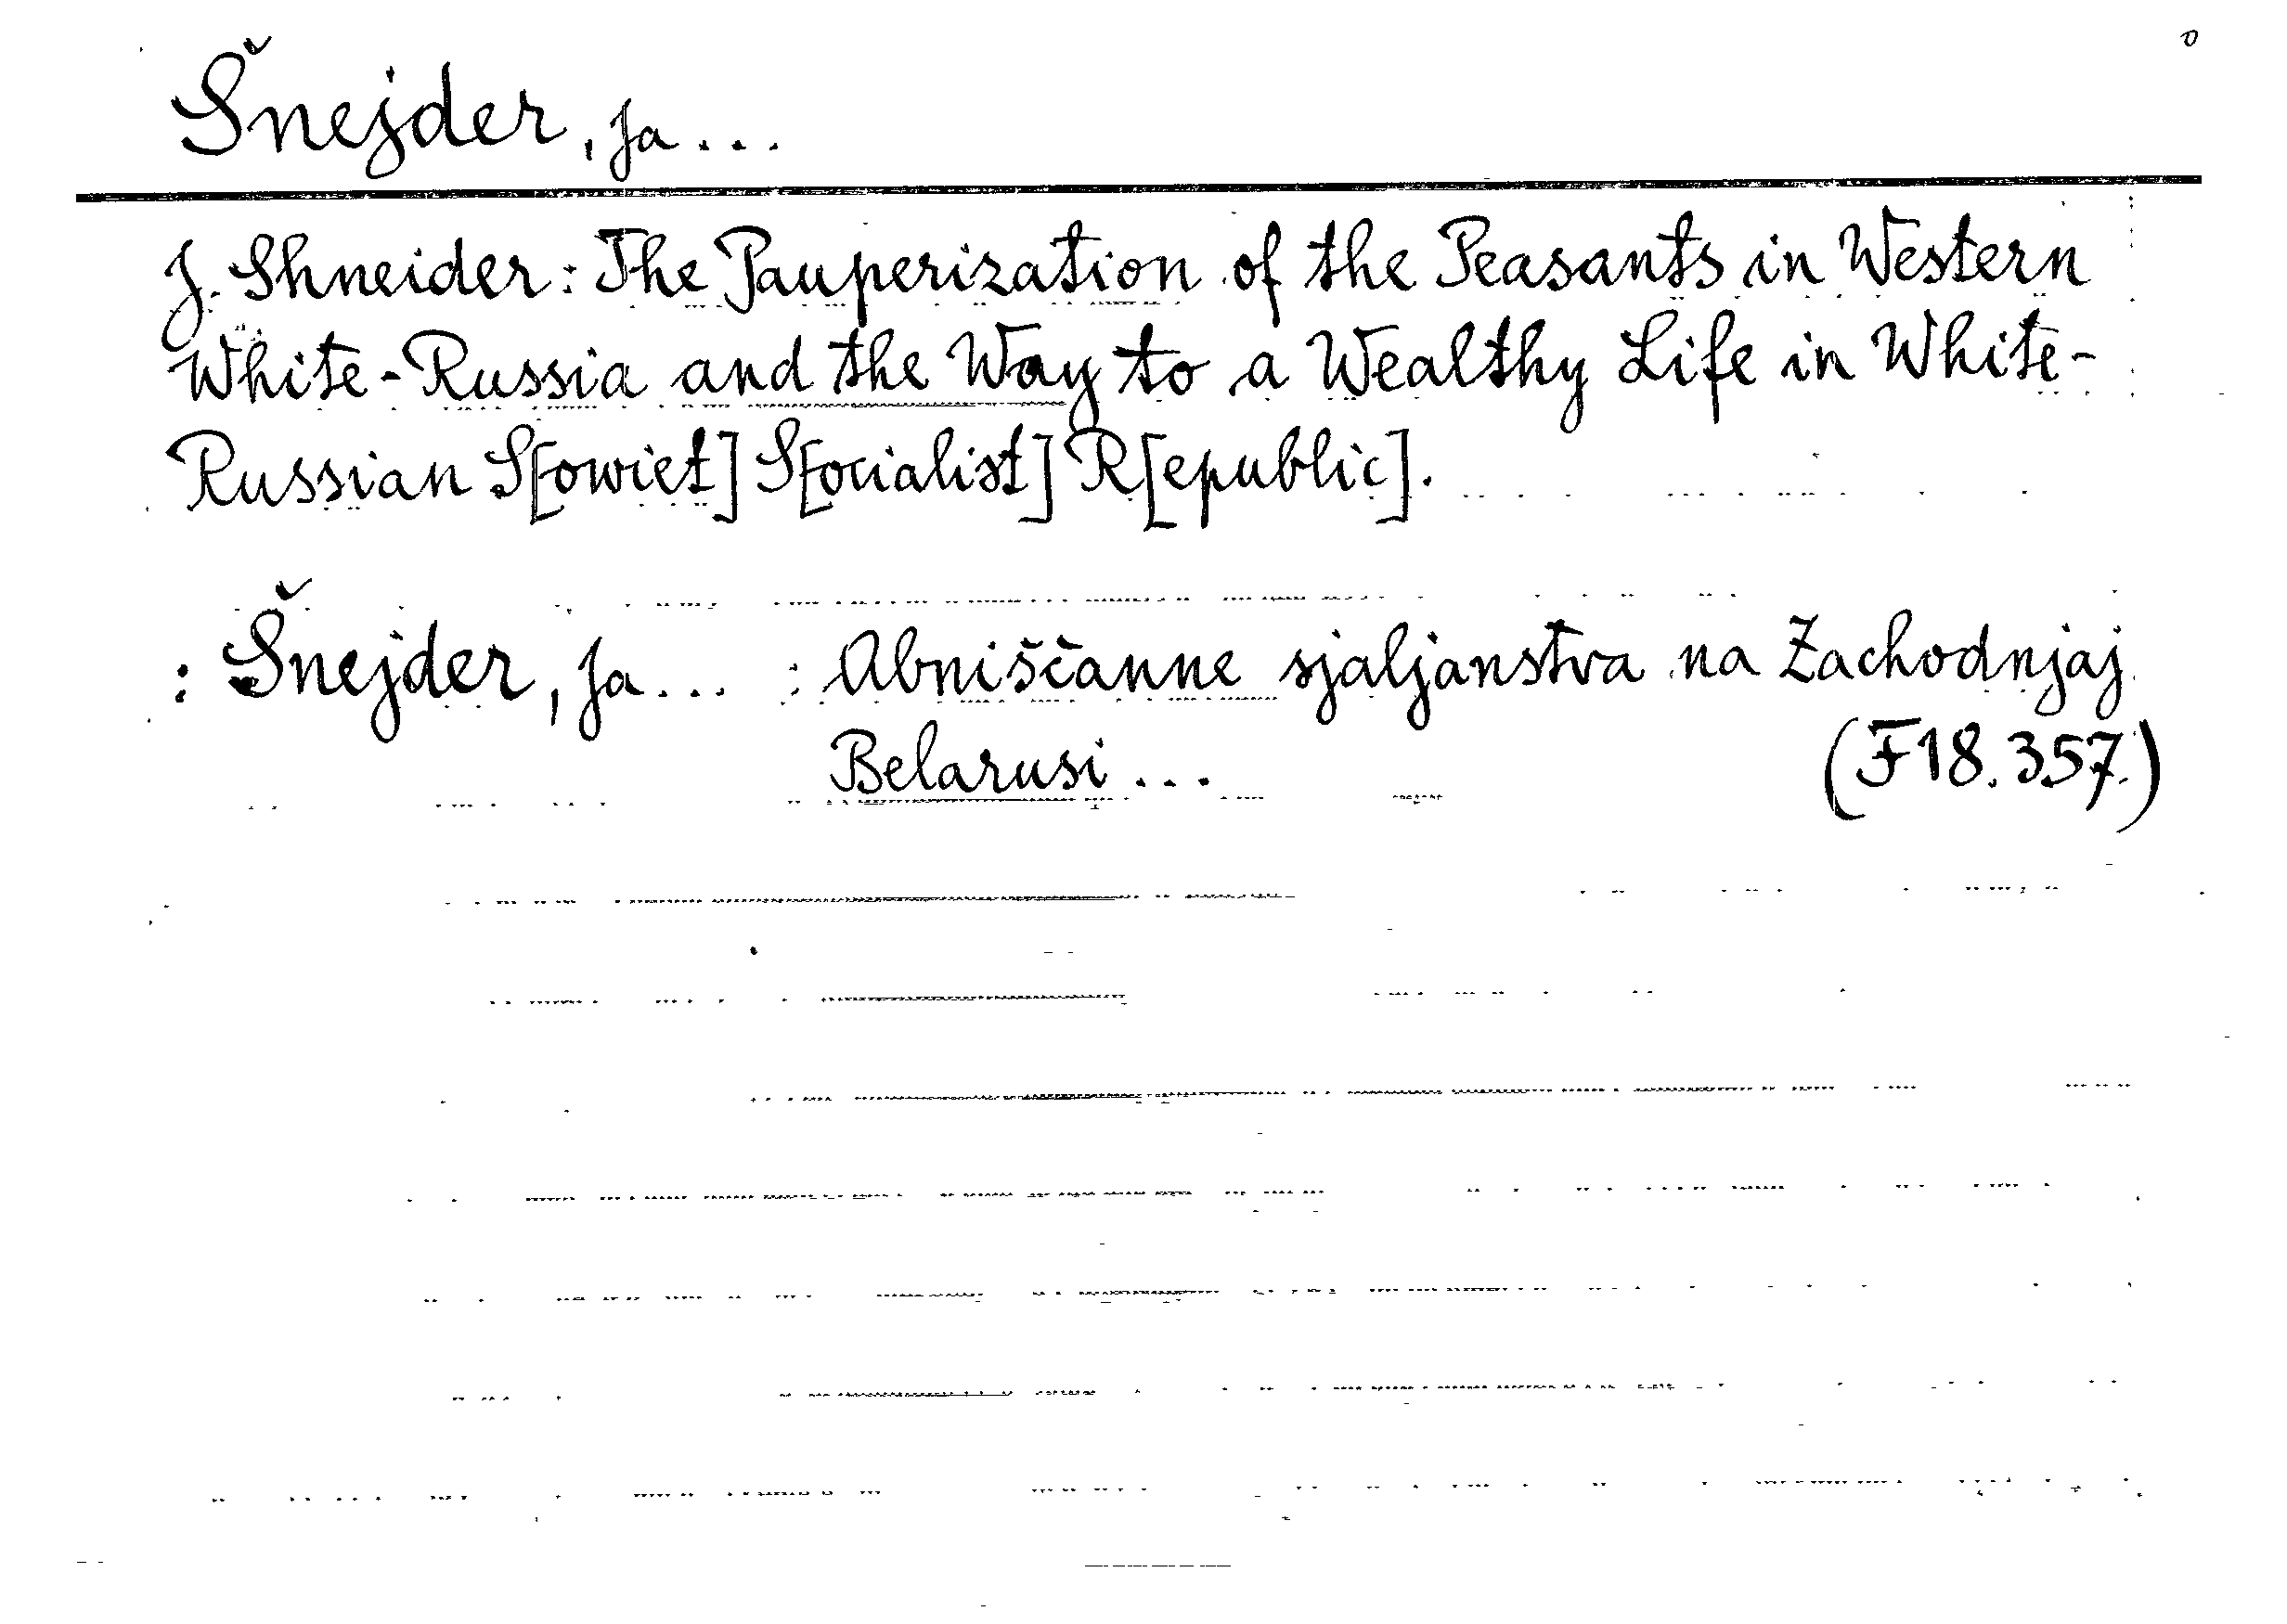 o
Šnejder, Ja...
J. Shneider: The Pauperization of the Peasants in Western
White-Russia and the Way to a Wealthy Life in White-
Russian S[owiet] S[ocialist] R[epublic].
: Šnejder, Ja... : Abniščanne sjaljanstva na Zachodnjaj
Belarusi... (F18.357.)